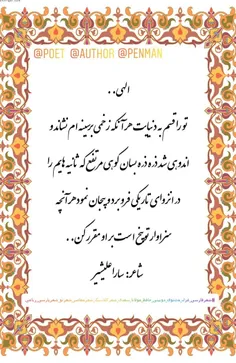 @POET @AUTHOR @PENMAN
الهی..
تو را قسم به دنیایت هر آنکه زخمی بر سینه ام نشاند و
اندوهی شد ذره ذره بسان کوهی مرتفع که ثانیه هایم را
در انزوای تاریکی فرو برد و پیچان نمود هر آنچه
سزاوار توبیخ است بر او مقرر کن..
شاعر: سارا علیشیر